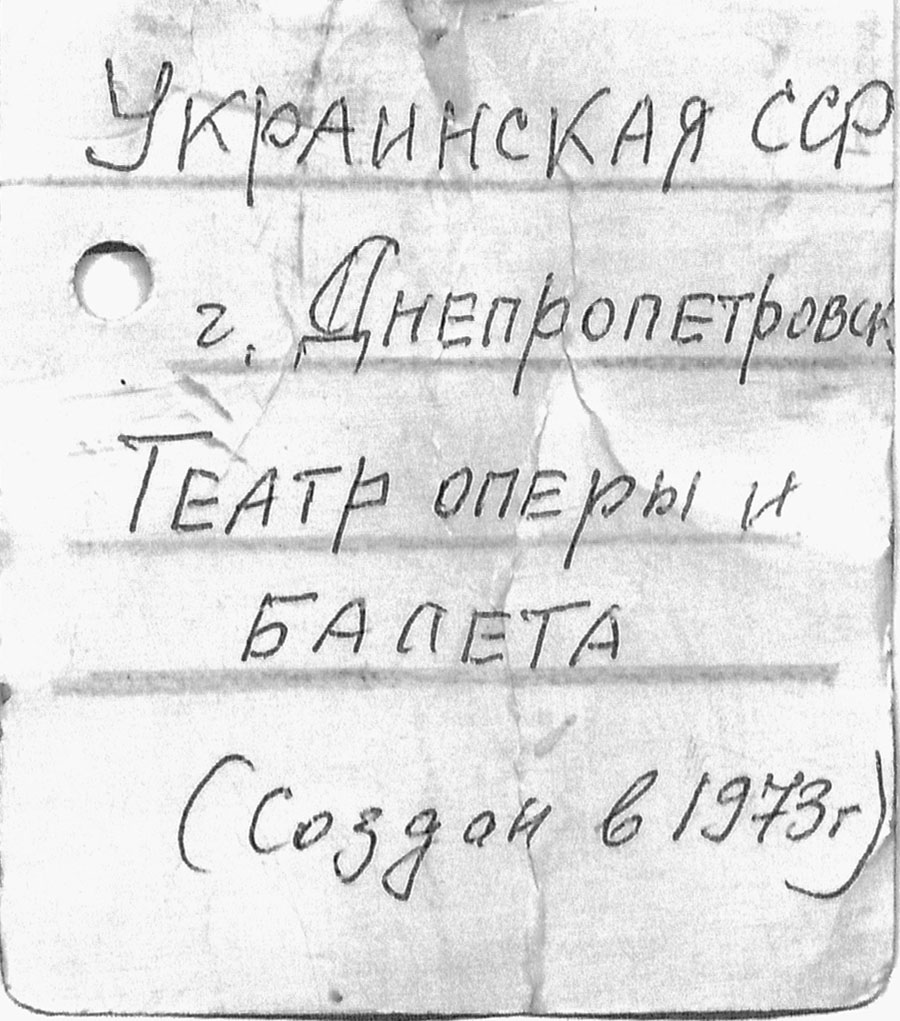 Украинская ССР
г. Днепропетровск
Театр оперы и
балета
(Создан в 1973г)